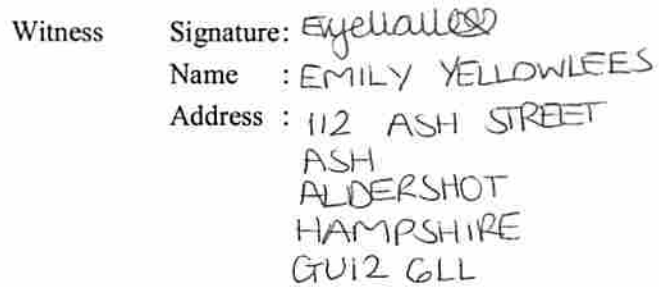 Witness Signature: Eyellowlees
Name : EMILY YELLOWLEES
Address : 112 ASH STREET
ASH
ALDERSHOT
HAMPSHIRE
GU12 6LL